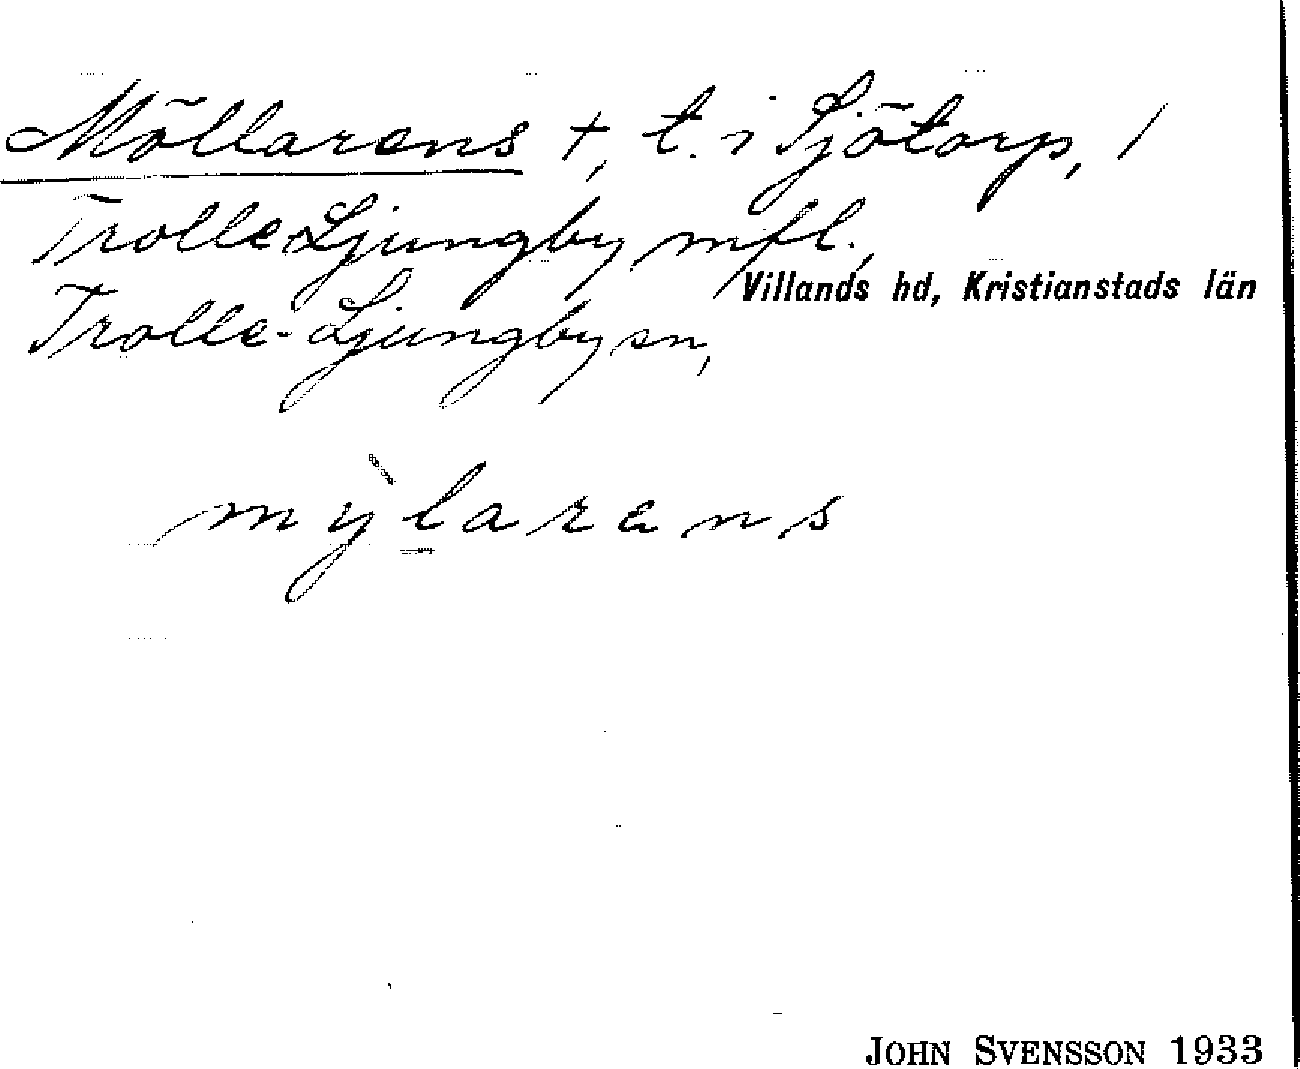 Möllarens +, t. i Sjötorp, 1
Trolle-Ljungby mfl.,
Villands hd, Kristianstads län
Trolle-Ljungby sn,
mỳlarens
JOHN SVENSSON 1933